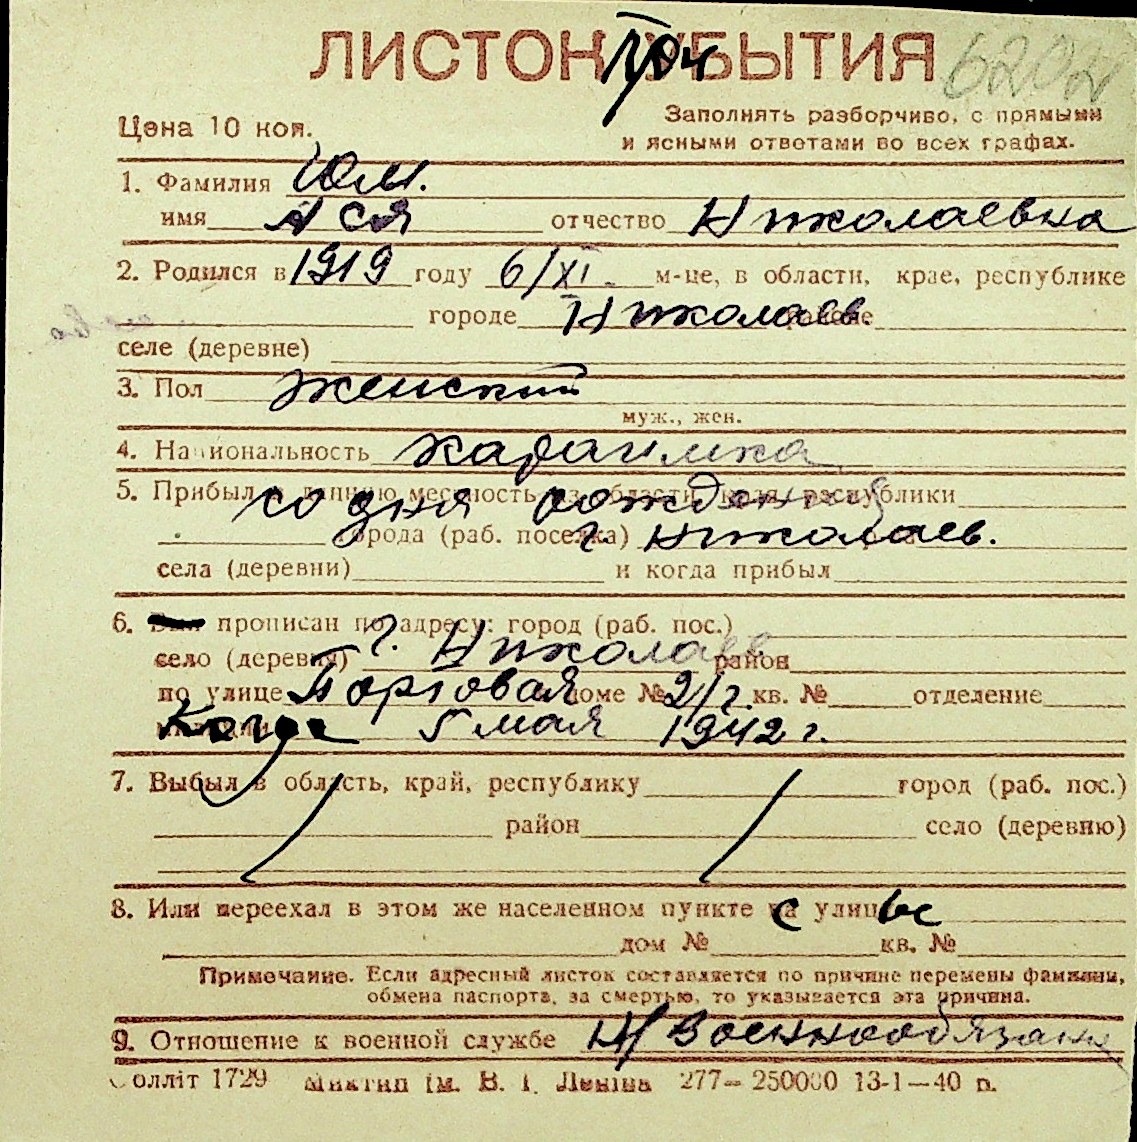 ЛИСТОК УБЫТИЯ 6202
Цена 10 коп.
Заполнять разборчиво, с прямыми
и ясными ответами во всех графах.
1. Фамилия Юм.
имя Ася отчество Николаевна
2. Родился в 1919 году 6/XI. м-це, в области, крае, республике
городе Николаев. районе
селе (деревне)
3. Пол женский
муж., жен.
4. Национальность караимка
5. Прибыл в данную местность из области, края, республики
со дня рождения
города (раб. поселка) г. Николаев.
села (деревни) и когда прибыл
6. Был прописан по адресу: город (раб. пос.)
село (деревня) г. Николаев район
по улице Портовая доме № 2/г. кв. № отделение
милиции Когда 5 мая 1942 г.
7. Выбыл в область, край, республику город (раб. пос.)
район село (деревню)
8. Или переехал в этом же населенном пункте с улицы
дом № кв. №
Примечание. Если адресный листок составляется по причине перемены фамилии,
обмена паспорта, за смертью, то указывается эта причина.
9. Отношение к военной службе Н/военнообязан
олліт 1729 ім. В. І. Леніна 277— 250000 13-1—40 п.